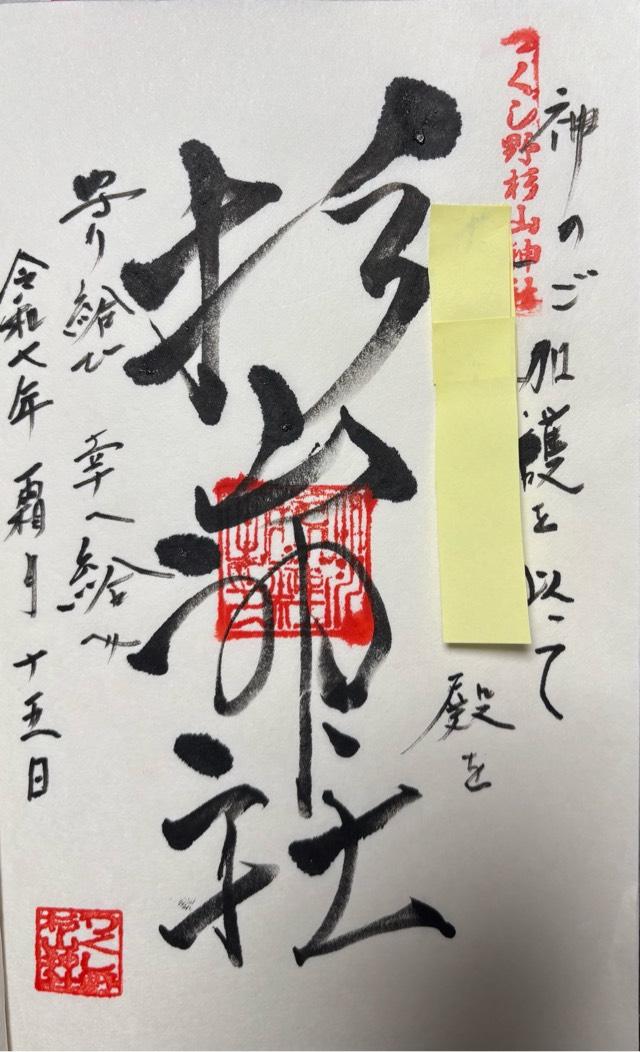 つくし野杉山神社
神のご加護を以って
殿を
杉山神社
守り給ひ 幸へ給へ
令和七年 霜月 十五日